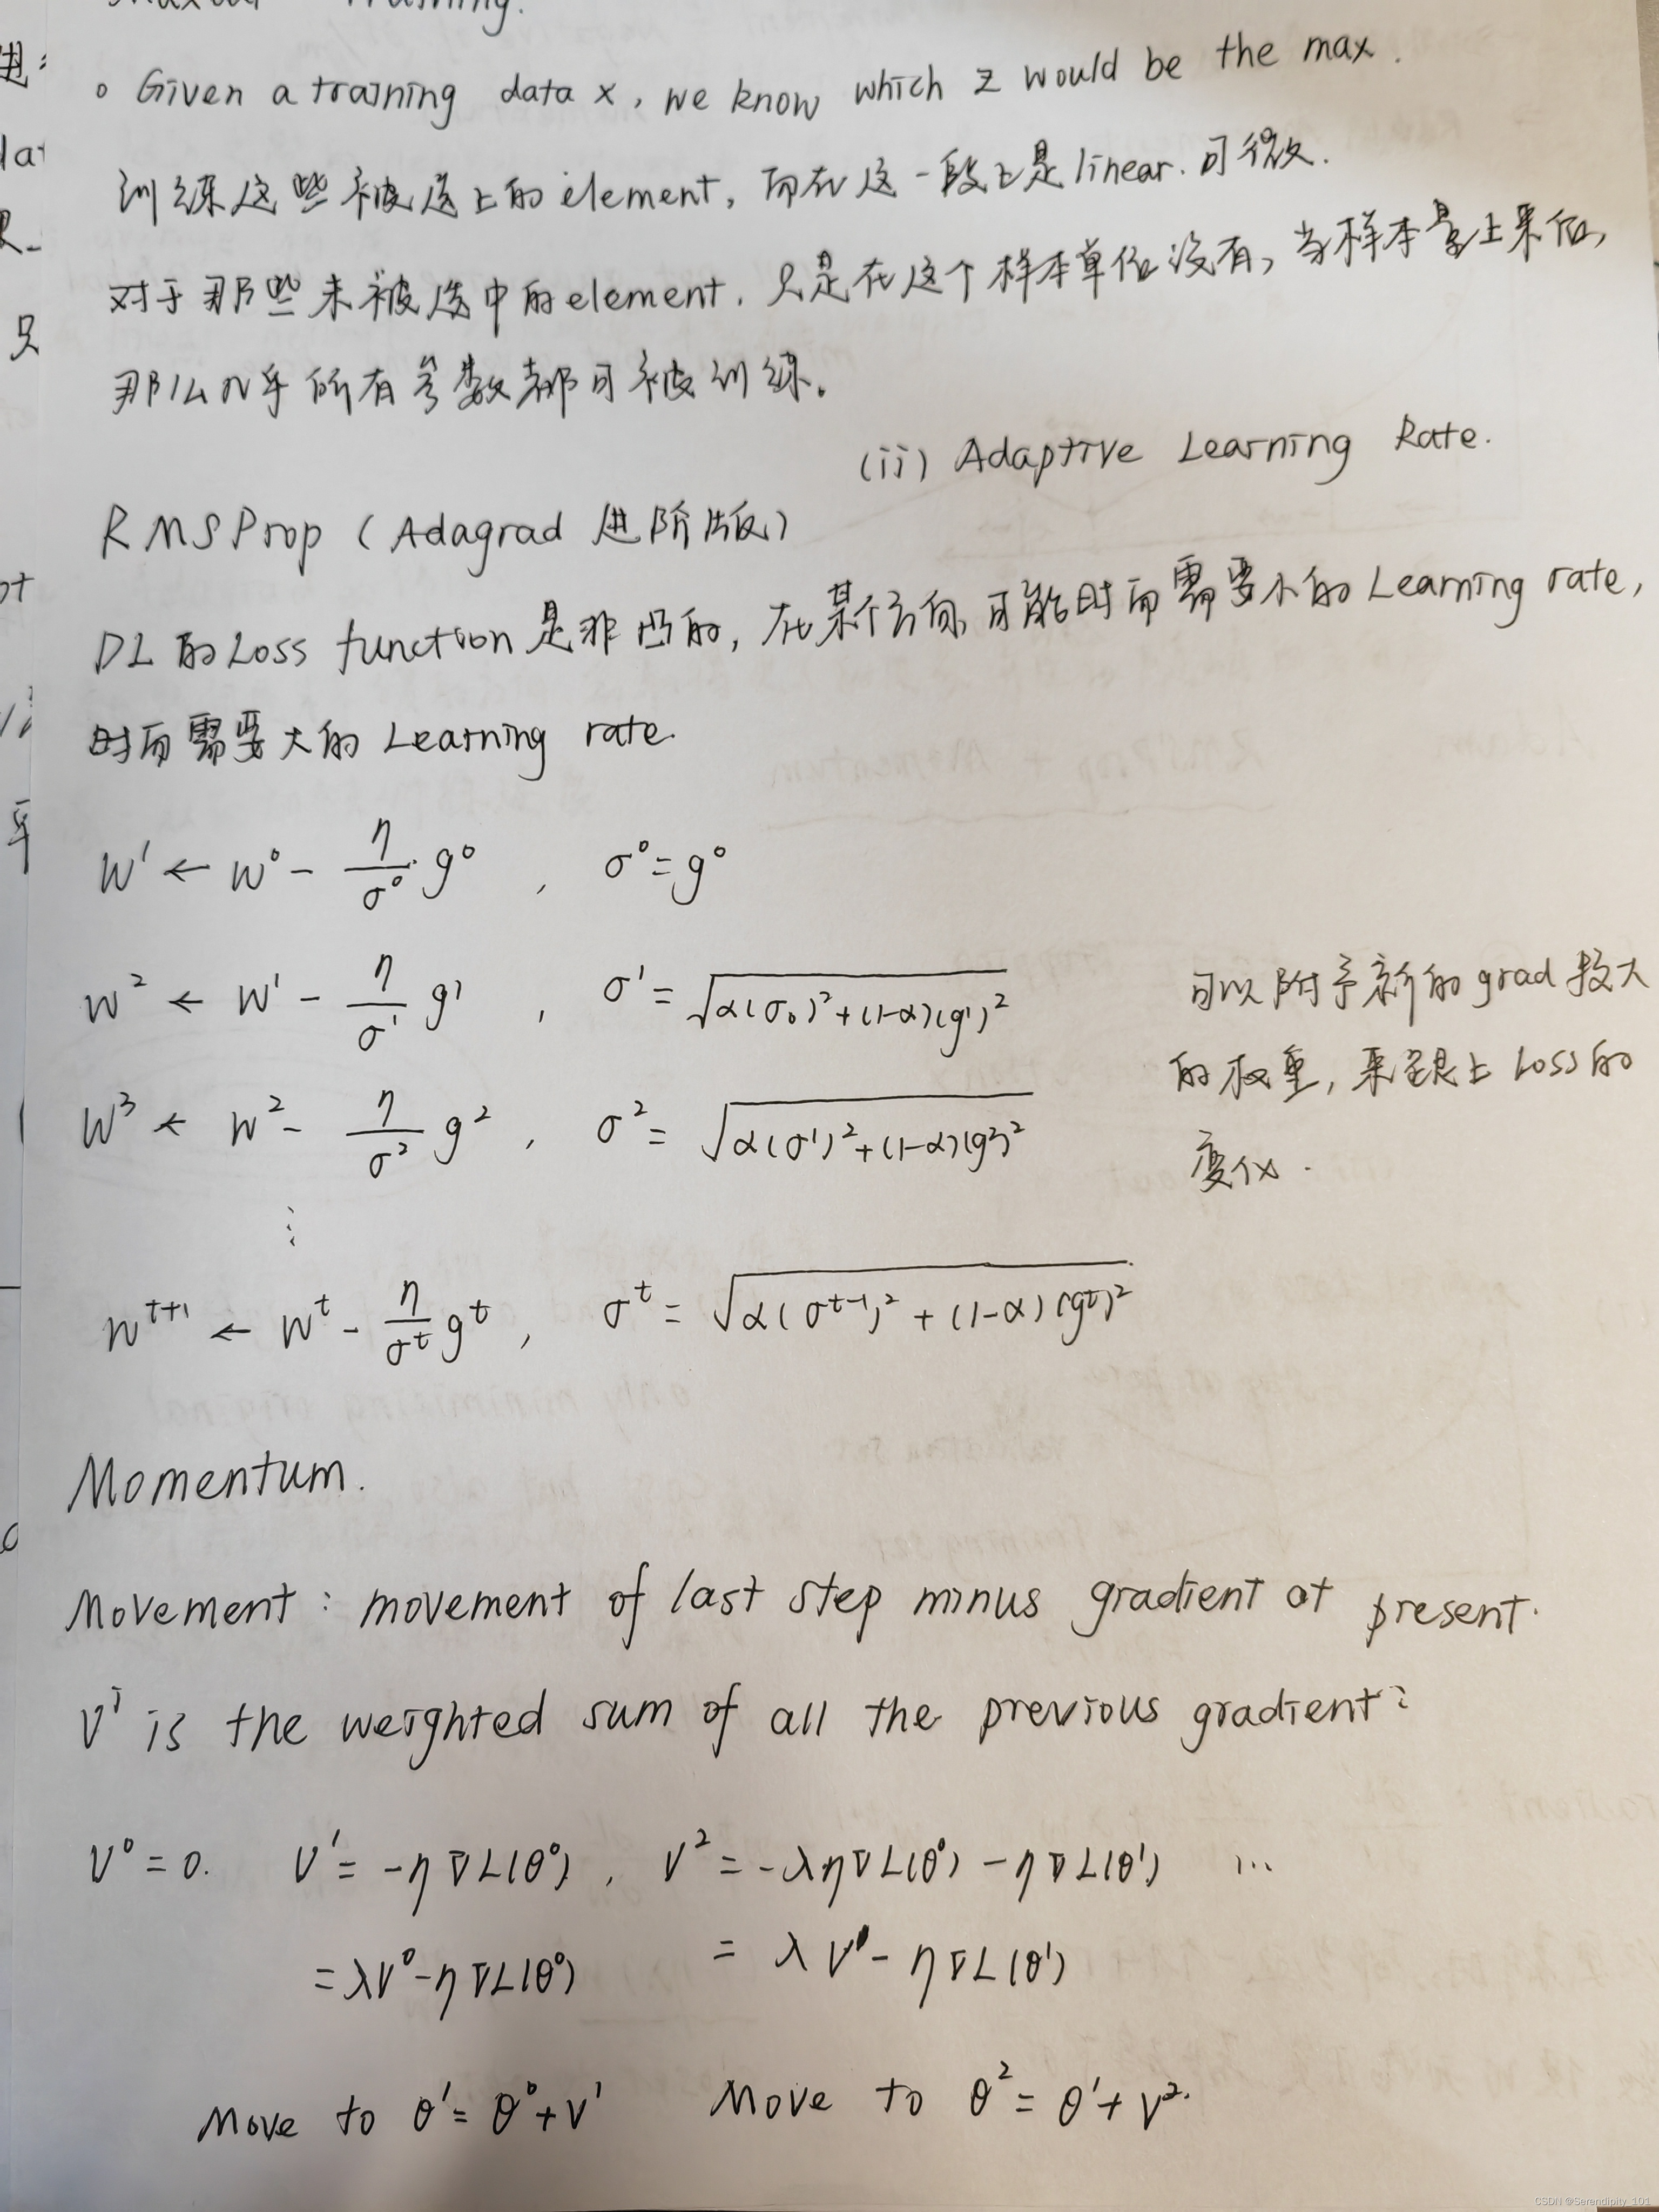 Training.
。Given a training data x, we know which z would be the max.
训练这些被选上的element, 而在这一段上是linear. 可微.
对于那些未被选中的element, 只是在这个样本单位没有, 当样本量上来后,
那么几乎所有参数都可被训练。
(ii) Adaptive Learning Rate.
RMSProp (Adagrad 进阶版)
DL的Loss function是非凸的, 在某个方向可能时而需要小的Learning rate,
时而需要大的 Learning rate.
w¹ ← w⁰ - η/σ⁰ · g⁰ , σ⁰ = g⁰
w² ← w¹ - η/σ¹ g¹ , σ¹ = √(α(σ₀)²+(1-α)(g¹)²)
w³ ← w² - η/σ² g² , σ² = √(α(σ¹)²+(1-α)(g²)²)
⋮
w^(t+1) ← w^t - η/σ^t g^t , σ^t = √(α(σ^(t-1))² + (1-α)(g^t)²)
可以附予新的grad较大
的权重, 来跟上Loss的
变化.
Momentum.
Movement: movement of last step minus gradient at present.
Vⁱ is the weighted sum of all the previous gradient:
V⁰ = 0. V¹ = -η∇L(θ⁰), V² = -λη∇L(θ⁰) - η∇L(θ¹) ...
= λV⁰ - η∇L(θ⁰) = λV¹ - η∇L(θ¹)
Move to θ¹ = θ⁰ + V¹ Move to θ² = θ¹ + V².
CSDN @Serendipity_101